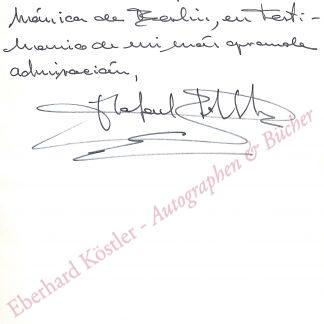 mónica de Berlín, en testi-
monio de mi más grande
admiración,
Rafael
Eberhard Köstler - Autographen & Bücher